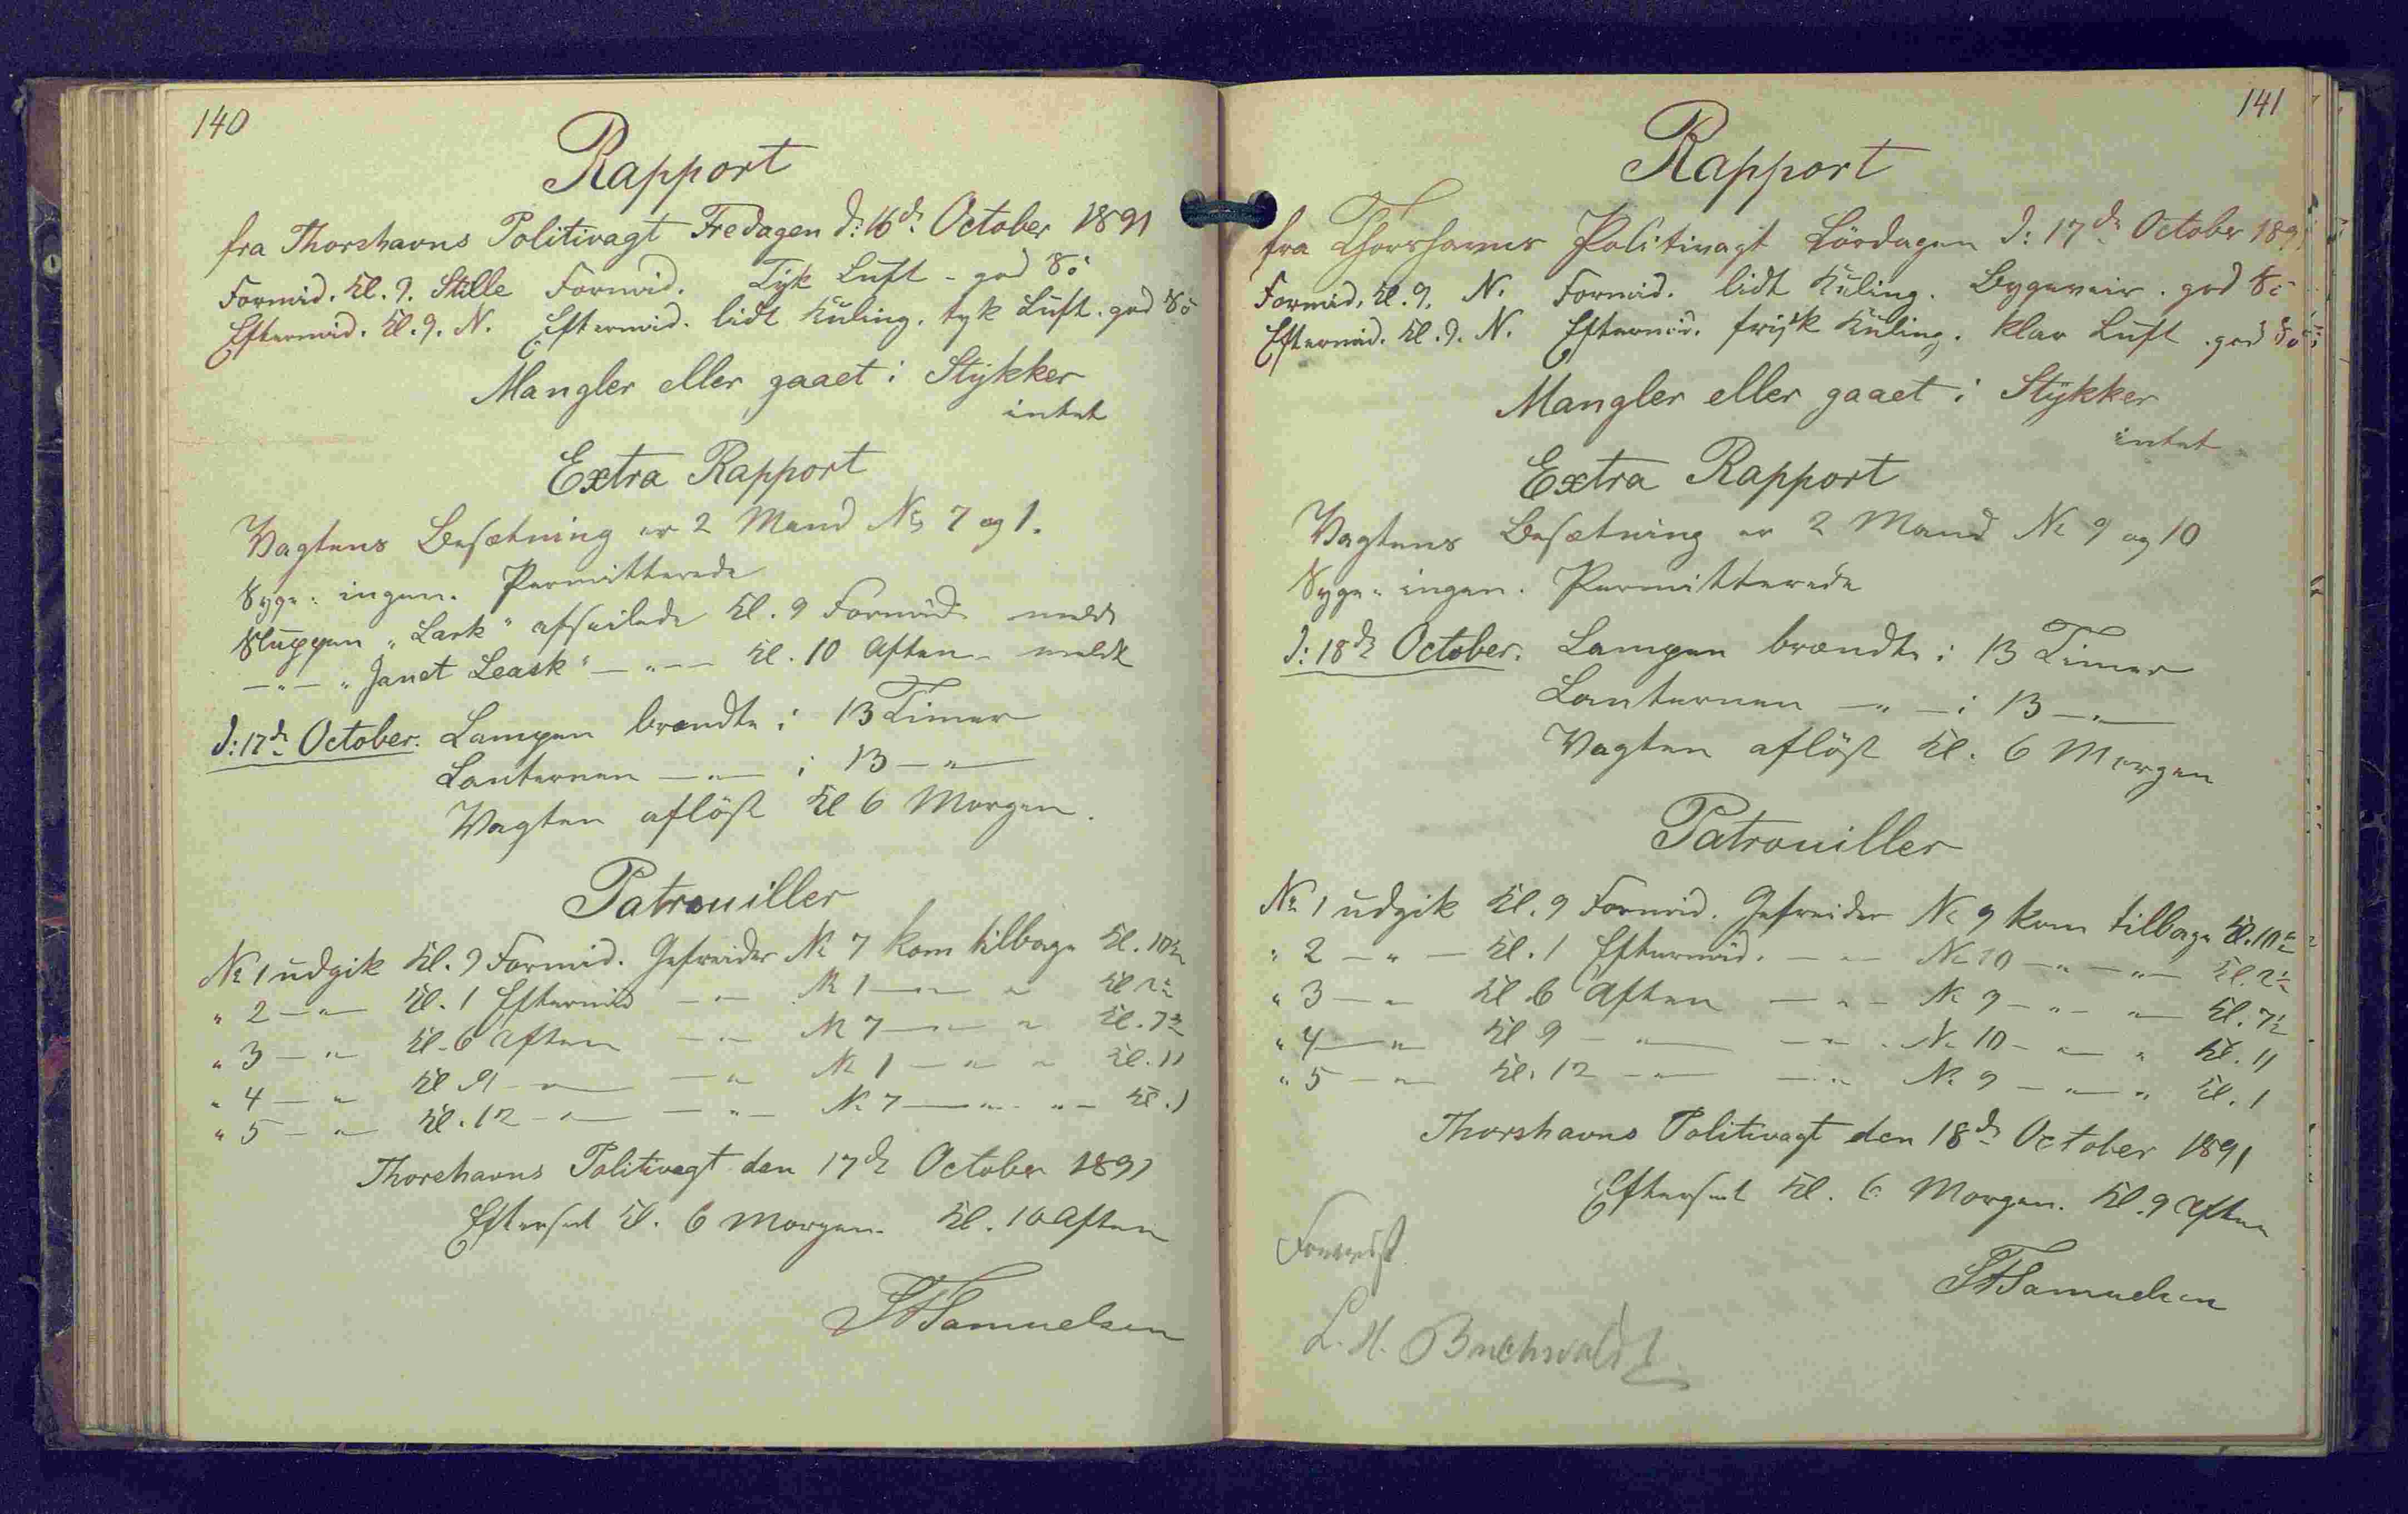 140
Rapport
fra Thorshavns Politivagt Fredagen d: 16de October 1891
Formid. Kl. 9. Stille Formid. Tyk Luft - god Sö
Eftermid. Kl. 9. N. Eftermid. lidt Kuling. tyk Luft. god Sö
Mangler eller gaaet i Stykker
intet
Extra Rapport
Vagtens Besætning er 2 Mand No 7 og 1.
Syge: ingen. Permitterede
Sluppen "Lark" afseilede Kl. 9 Formid. meldt
—"— "Janet Leask" —"— Kl. 10 Aften - meldt
d: 17de October. Lampen brændte i 13 Timer
Lanternen —"— i 13 —"—
Vagten aflöst Kl 6 Morgen.
Patrouiller
No 1 udgik Kl. 9 Formid. Gefreider No 7 kom tilbage Kl. 10½
" 2 —"— Kl. 1 Eftermid —"— No 1 —"— " Kl 2½
" 3 —"— Kl. 6 Aften —"— No 7 —"— " Kl. 7½
" 4 —"— Kl 9 —"— —"— No 1 —"— " Kl. 11
" 5 —"— Kl. 12 —"— —"— No 7 —"— "— Kl. 1
Thorshavns Politivagt den 17de October 1891
Efterset Kl. 6 Morgen. Kl. 10 Aften
Samuelsen
141
Rapport
fra Thorshavns Politivagt Lördagen d: 17de October 1891
Formid. Kl. 9. N. Formid. lidt Kuling. Bygeveir. god Sö
Eftermid. Kl. 9. N. Eftermid. frisk Kuling. klar Luft. god Sö
Mangler eller gaaet i Stykker
intet
Extra Rapport
Vagtens Besætning er 2 Mand No 9 og 10
Syge: ingen. Permitterede
d: 18de October. Lampen brændte i 13 Timer
Lanternen —"— i 13 —"—
Vagten aflöst Kl. 6 Morgen
Patrouiller
No 1 udgik Kl. 9 Formid. Gefreider No 9 kom tilbage Kl. 10½
" 2 —"— Kl. 1 Eftermid. —"— No 10 —"—"— Kl. 2½
" 3 —"— Kl 6 Aften —"— No 9 —"— "— Kl. 7½
" 4 —"— Kl 9 —"— —"— No 10 —"— " Kl. 11
" 5 —"— Kl. 12 —"— —"— No 9 —"— " Kl. 1
Thorshavns Politivagt den 18de October 1891
Efterset Kl. 6 Morgen. Kl. 9 Aften
Samuelsen
Forevist
L. H. Buchwaldt